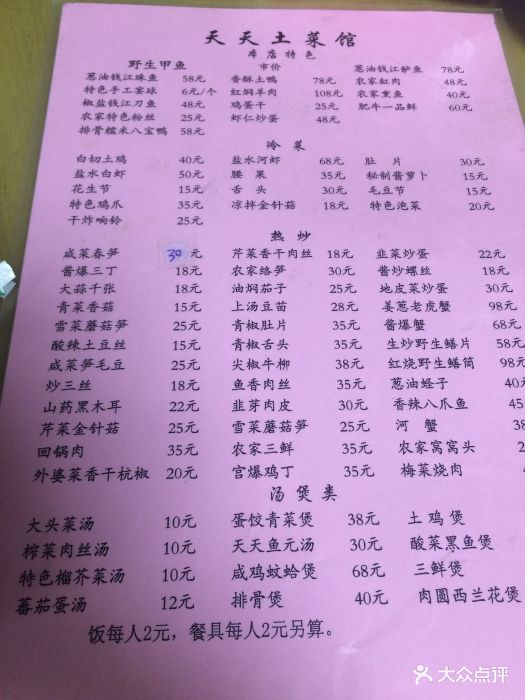 天天土菜馆
本店特色
野生甲鱼 市价 葱油钱江鲈鱼 78元
葱油钱江珠鱼 58元 香酥土鸭 78元 农家缸肉 48元
特色手工宴球 6元/个 红焖羊肉 108元 农家熏鱼 40元
椒盐钱江刀鱼 48元 鸡蛋干 25元 肥牛一品鲜 60元
农家特色粉丝 25元 虾仁炒蛋 48元
排骨糯米八宝鸭 58元
冷菜
白切土鸡 40元 盐水河虾 68元 肚片 30元
盐水白虾 50元 腰果 35元 秘制酱萝卜 15元
花生节 15元 舌头 30元 毛豆节 15元
特色鸡爪 35元 凉拌金针菇 18元 特色泡菜 20元
干炸响铃 25元
热炒
咸菜春笋 30元 芹菜香干肉丝 18元 韭菜炒蛋 22元
酱爆三丁 18元 农家烙笋 30元 酱炒螺丝 18元
大蒜千张 18元 油焖茄子 25元 地皮菜炒蛋 30元
青菜香菇 15元 上汤豆苗 28元 姜葱老虎蟹 98元
雪菜蘑菇笋 25元 青椒肚片 35元 酱爆蟹 68元
酸辣土豆丝 15元 青椒舌头 35元 生炒野生鳝片 58元
咸菜笋毛豆 25元 尖椒牛柳 38元 红烧野生鳝筒 98元
炒三丝 18元 鱼香肉丝 35元 葱油蛏子 40
山药黑木耳 22元 韭芽肉皮 30元 香辣八爪鱼 45
芹菜金针菇 25元 雪菜蘑菇笋 25元 河蟹 38
回锅肉 35元 农家三鲜 35元 农家窝窝头 2
外婆菜香干杭椒 20元 宫爆鸡丁 35元 梅菜烧肉 4
汤煲类
大头菜汤 10元 蛋饺青菜煲 38元 土鸡煲
榨菜肉丝汤 10元 天天鱼元汤 30元 酸菜黑鱼煲
特色榴芥菜汤 10元 咸鸡蚊蛤煲 68元 三鲜煲
蕃茄蛋汤 12元 排骨煲 40元 肉圆西兰花煲
饭每人2元，餐具每人2元另算。
大众点评